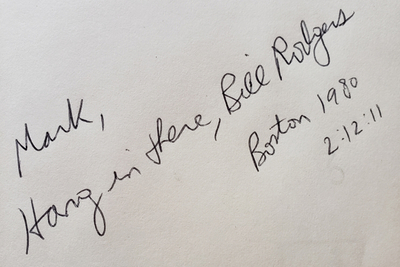 Mark,
Hang in there, Bill Rodgers
Boston 1980
2:12:11